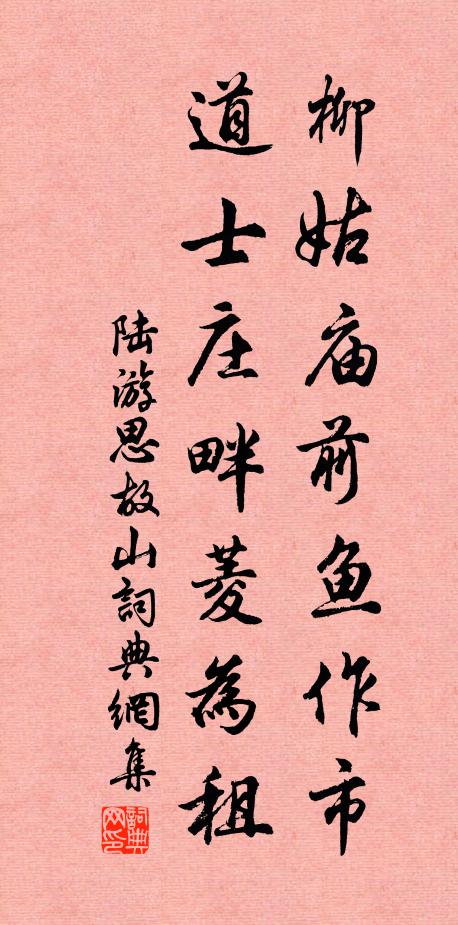 柳姑庙前鱼作市
道士庄畔菱為租
陆游思故山詞典網集
詞典网印